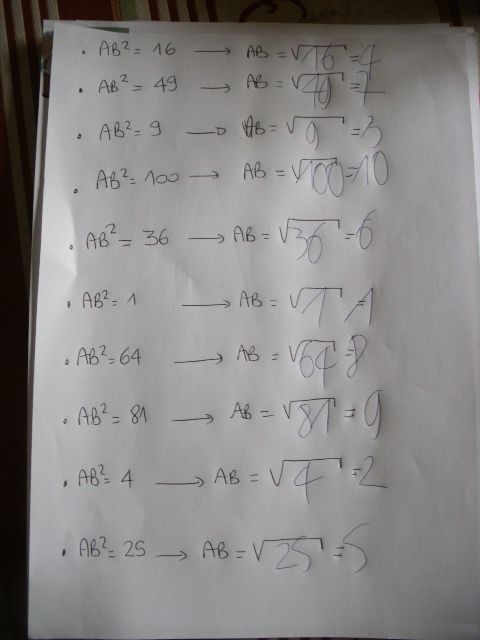 . AB² = 16 → AB = √16 = 4
. AB² = 49 → AB = √49 = 7
. AB² = 9 → AB = √9 = 3
. AB² = 100 → AB = √100 = 10
. AB² = 36 → AB = √36 = 6
. AB² = 1 → AB = √1 = 1
. AB² = 64 → AB = √64 = 8
. AB² = 81 → AB = √81 = 9
. AB² = 4 → AB = √4 = 2
. AB² = 25 → AB = √25 = 5